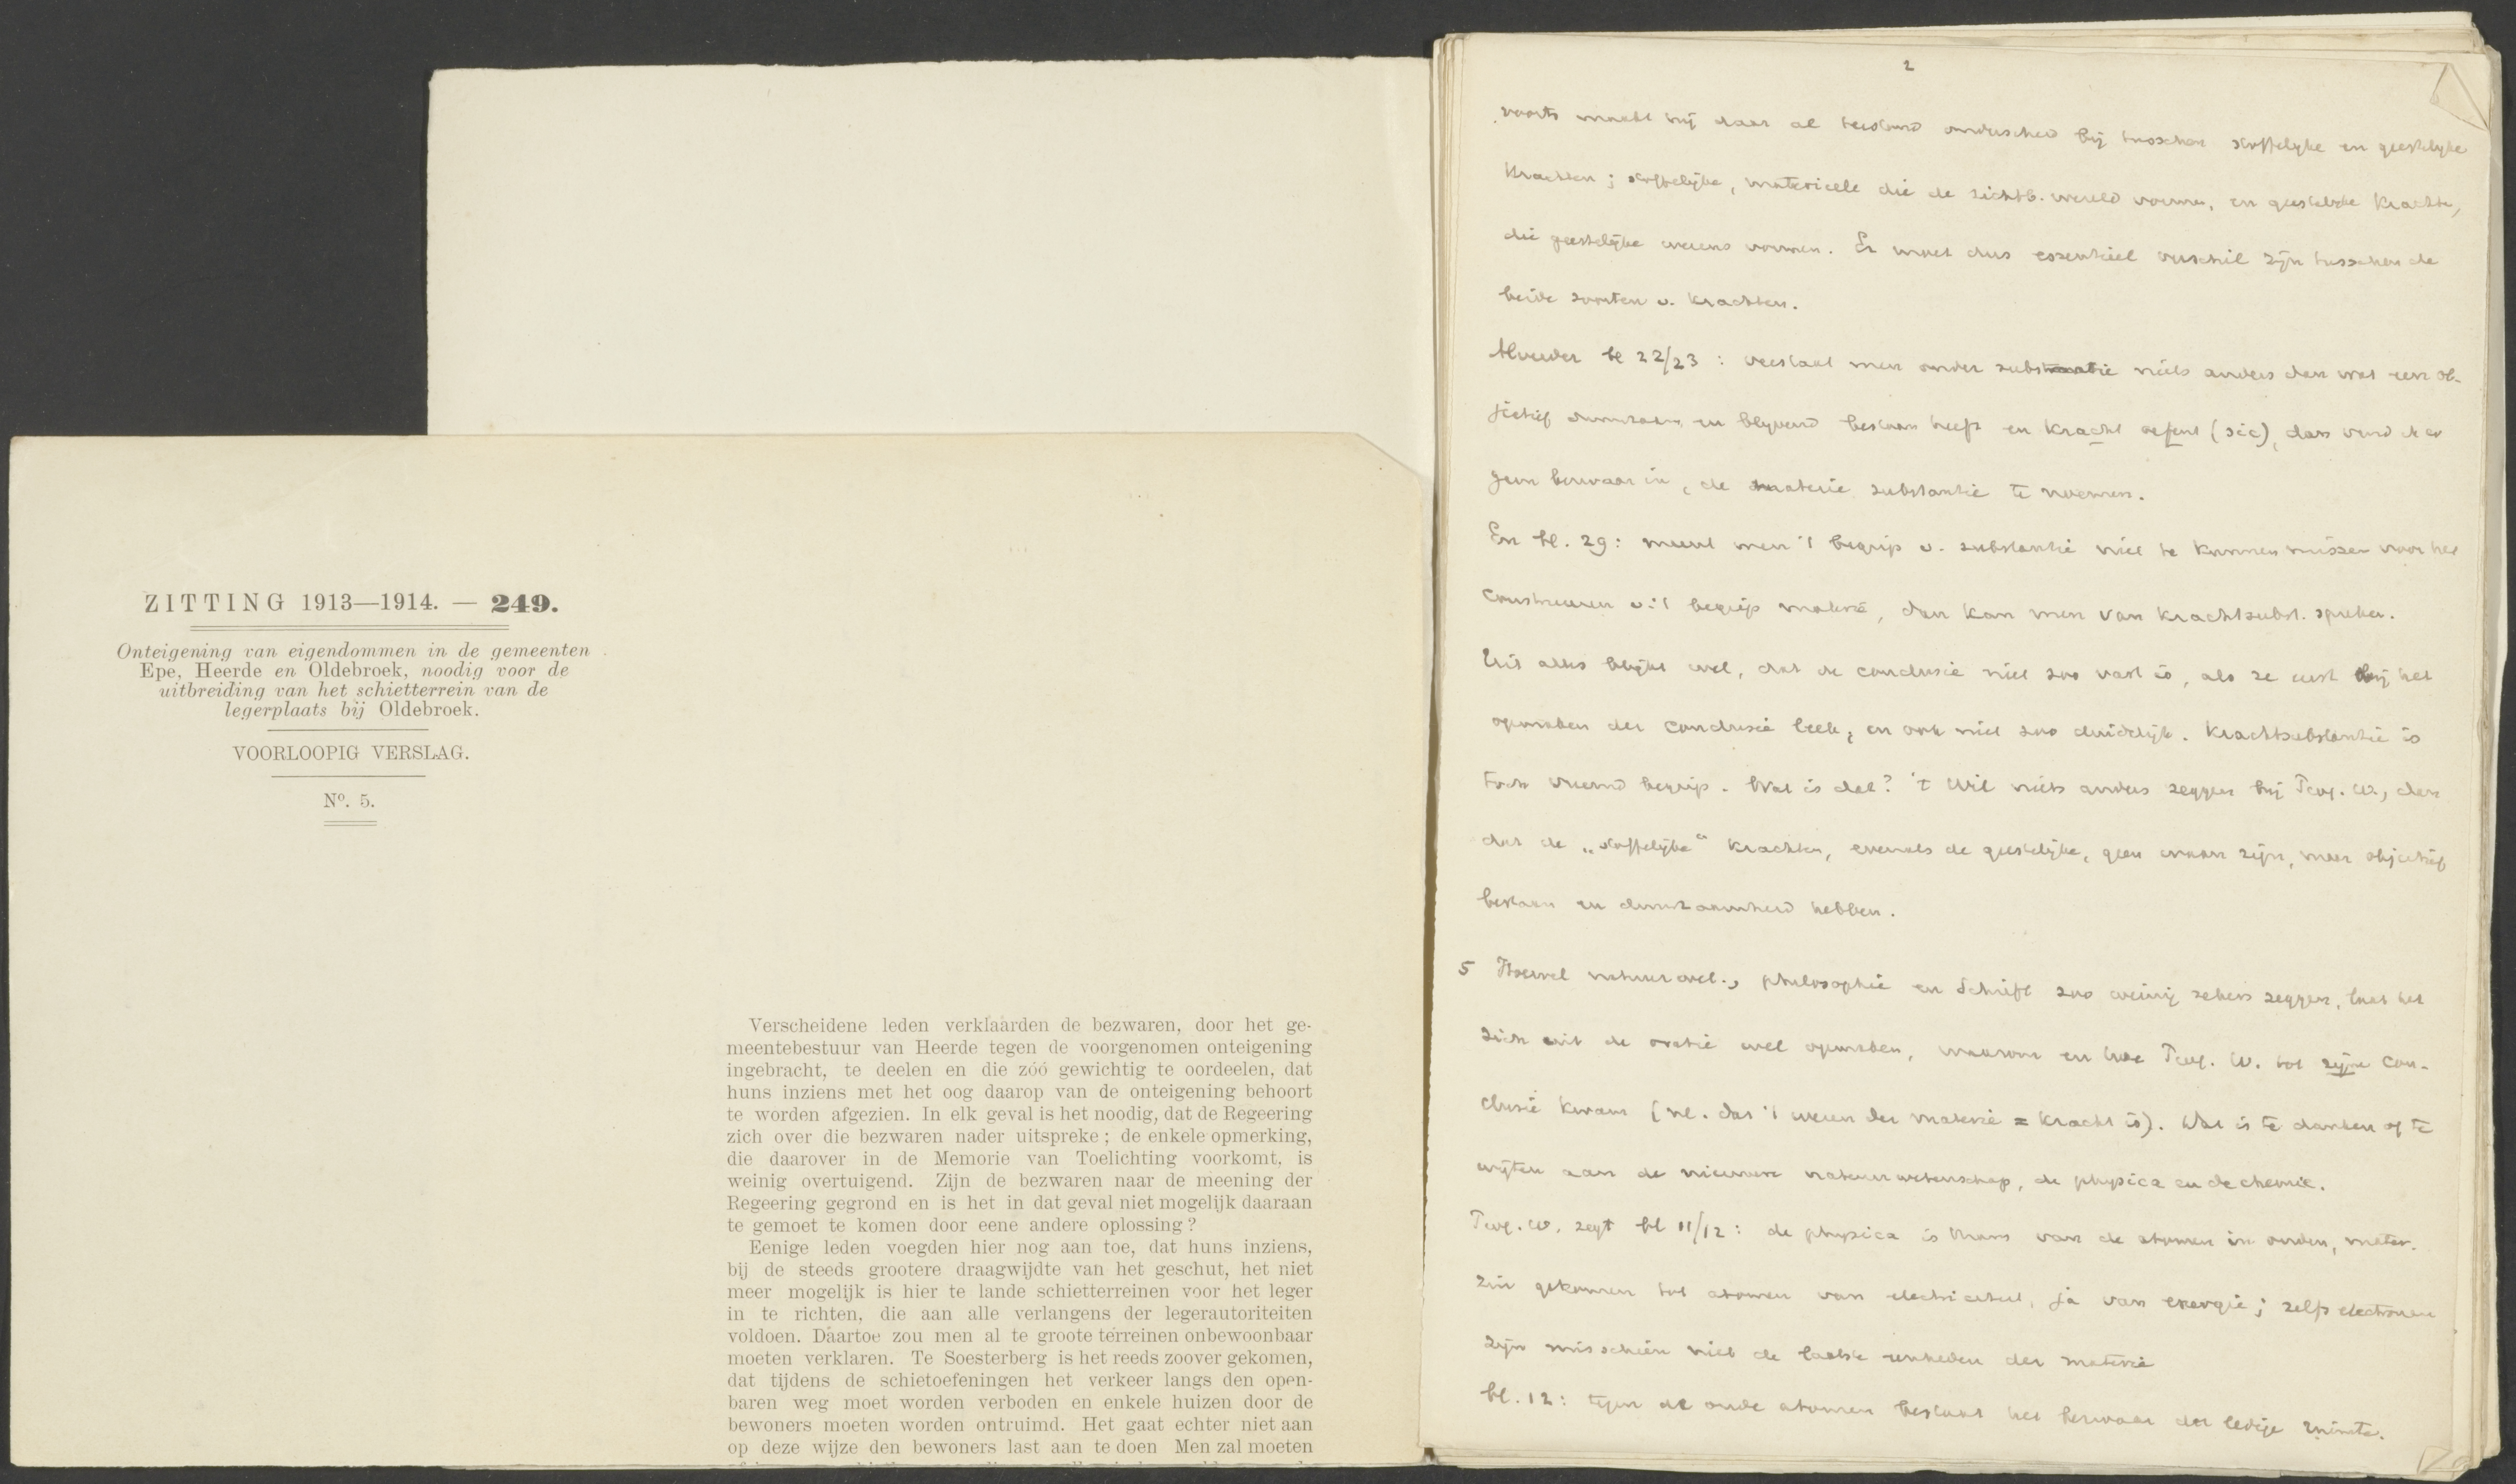 ZITTING 1913—1914. — 249.
Onteigening van eigendommen in de gemeenten
Epe, Heerde en Oldebroek, noodig voor de
uitbreiding van het schietterrein van de
legerplaats bij Oldebroek.
VOORLOOPIG VERSLAG.
Nº. 5.
Verscheidene leden verklaarden de bezwaren, door het ge-
meentebestuur van Heerde tegen de voorgenomen onteigening
ingebracht, te deelen en die zóó gewichtig te oordeelen, dat
huns inziens met het oog daarop van de onteigening behoort
te worden afgezien. In elk geval is het noodig, dat de Regeering
zich over die bezwaren nader uitspreke; de enkele opmerking,
die daarover in de Memorie van Toelichting voorkomt, is
weinig overtuigend. Zijn de bezwaren naar de meening der
Regeering gegrond en is het in dat geval niet mogelijk daaraan
te gemoet te komen door eene andere oplossing?
Eenige leden voegden hier nog aan toe, dat huns inziens,
bij de steeds grootere draagwijdte van het geschut, het niet
meer mogelijk is hier te lande schietterreinen voor het leger
in te richten, die aan alle verlangens der legerautoriteiten
voldoen. Daartoe zou men al te groote terreinen onbewoonbaar
moeten verklaren. Te Soesterberg is het reeds zoover gekomen,
dat tijdens de schietoefeningen het verkeer langs den open-
baren weg moet worden verboden en enkele huizen door de
bewoners moeten worden ontruimd. Het gaat echter niet aan
op deze wijze den bewoners last aan te doen Men zal moeten
2
voorts maakt hij daar al onderscheid bij tusschen stoffelijke en geestelijke
krachten; stoffelijke, materieele die de zichtb. wereld vormen, en geestelijke krachten,
die geestelijke wezens vormen. Er moet dus essentieel verschil zijn tusschen de
beide soorten v. krachten.
bl 22/23: verstaat men onder substantie niets anders dan wat een ob-
jectief duurzaam en blijvend bestaan heeft en kracht oefent (sic), dan
geen bezwaar in, de materie substantie te noemen.
En bl. 29: meent men 't begrip v. substantie niet te kunnen missen voor het
construeeren v. 't begrip materie, dan kan men van krachtsubst. spreken.
Uit alles blijkt wel, dat de conclusie niet zoo vast is, als ze eerst bij het
opmaken der conclusie leek, en ook niet zoo duidelijk. Krachtsubstantie is
toch vreemd begrip. Wat is dat? 't Wil niets anders zeggen bij W., dan
dat de „stoffelijke“ krachten, evenals de geestelijke, geen waan zijn, maar objectief
bestaan en duurzaamheid hebben.
5 Hoewel natuurwet., philosophie en Schrift zoo weinig zekers zeggen, laat het
zich uit de oratie wel opmaken, waarom en hoe W. tot zijne con-
clusie kwam (nl. dat 't wezen der materie = kracht is). Dat is te danken of te
wijten aan de nieuwere natuurwetenschap, de physica en de chemie.
W. zegt bl 11/12: de physica is thans van de atomen in ouden, mater.
zin gekomen tot atomen van electriciteit, ja van energie; zelfs electronen
zijn misschien niet de laatste eenheden der materie
bl. 12: tegen de oude atomen bestaat het bezwaar der ledige ruimte.